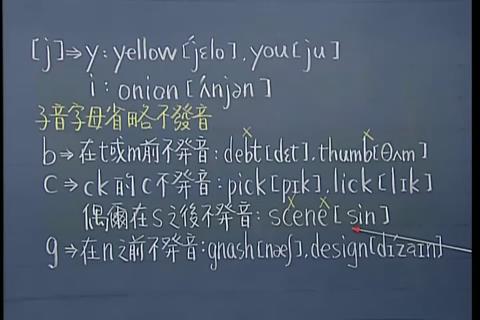 [j]⇒y:yellow[ˊjɛlo].you[ju]
i:onion[ˊʌnjən]
子音字母省略不發音
b⇒在t或m前不發音:debt[dɛt].thumb[θʌm]
c⇒ck的c不發音:pick[pɪk].lick[lɪk]
偶爾在s之後不發音:scene[sin]
g⇒在n之前不發音:gnash[næʃ].design[dɪˊzaɪn]